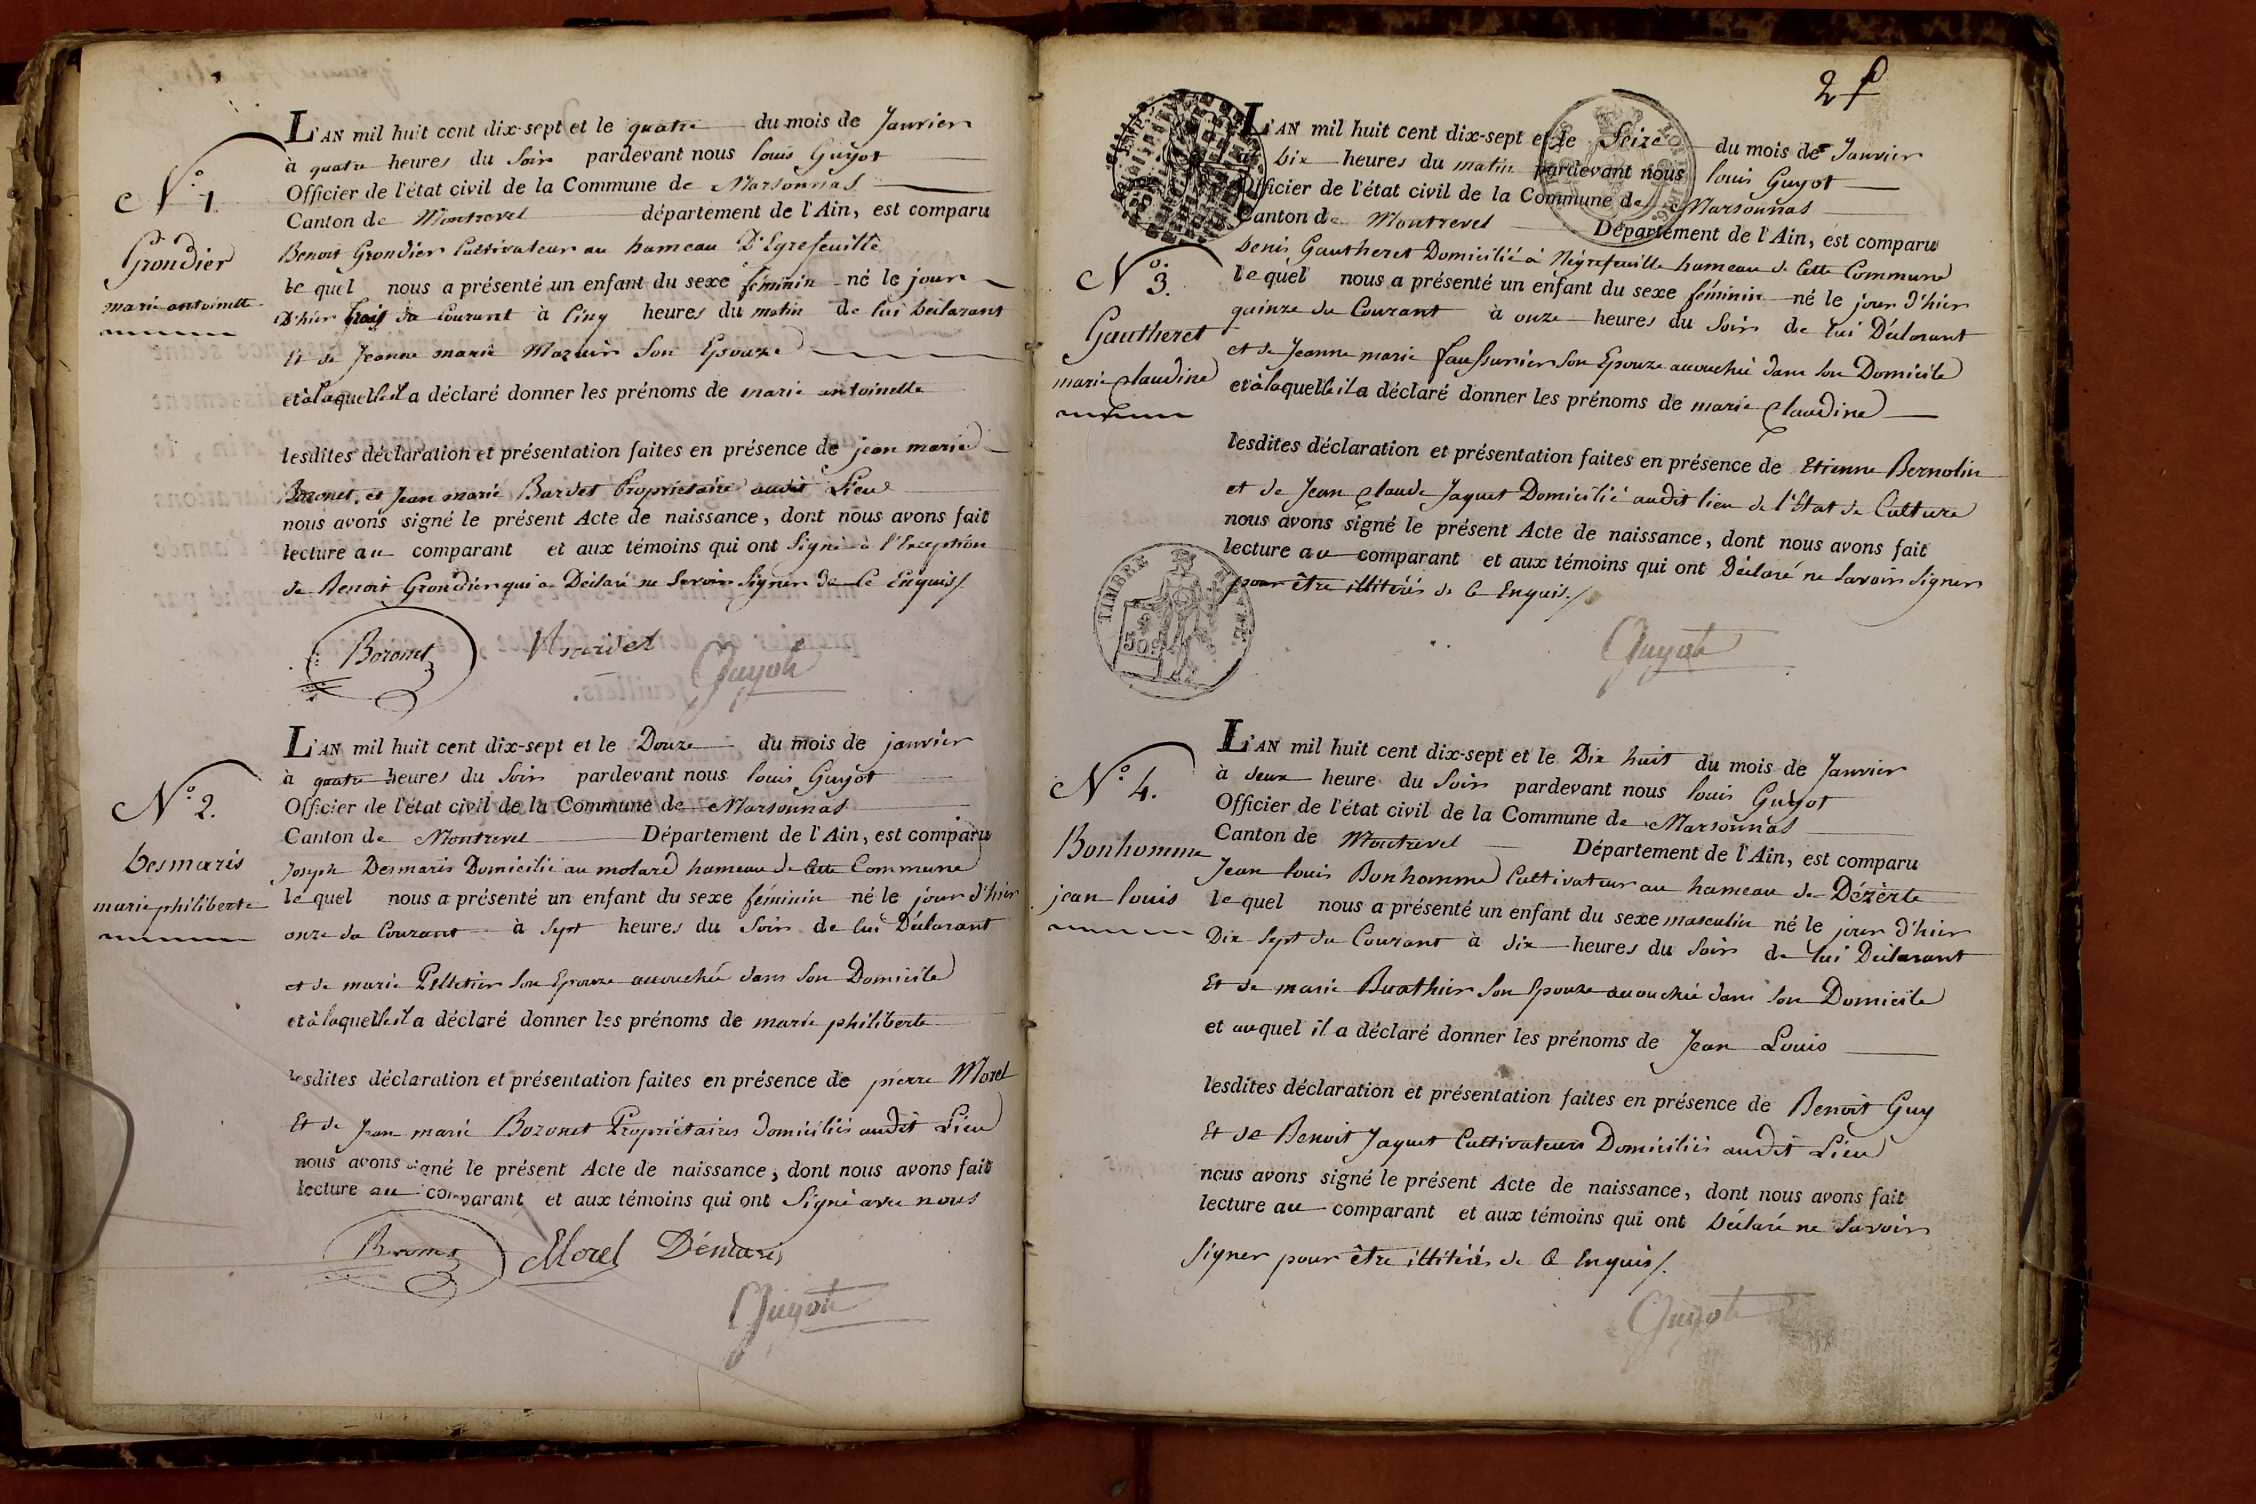 L'AN mil huit cent dix-sept et le quatre du mois de Janvier
à quatre heures du Soir pardevant nous louis Guyot
Officier de l'état civil de la Commune de Marsonnas
Canton de Montrevel département de l'Ain, est comparu
N.° 1
Grondier
marie antoinette
Benoit Grondier Cultivateur au hameau D'Egrefeuille
lequel nous a présenté un enfant du sexe féminin né le jour
D'hier trois du Courant à Cinq heures du matin de lui Déclarant
Et de Jeanne marie Mazuir Son Epouze
et à laquelle il a déclaré donner les prénoms de marie antoinette
lesdites déclaration et présentation faites en présence de jean marie
Bozonet, et Jean marie Bardet Propriétaire audit Lieu
nous avons signé le présent Acte de naissance, dont nous avons fait
lecture au comparant et aux témoins qui ont Signé à l'Exception
de Benoit Grondier qui a Déclaré ne Savoir Signer de Ce Enquis/.
Bozonet Bardet Guyot
L'AN mil huit cent dix-sept et le Douze du mois de janvier
à quatre heures du Soir pardevant nous louis Guyot
Officier de l'état civil de la Commune de Marsonnas
Canton de Montrevel Département de l'Ain, est comparu
N.° 2.
Desmaris
marie philiberte
Joseph Desmaris Domicilié au molard hameau de Cette Commune
lequel nous a présenté un enfant du sexe féminin né le jour d'hier
onze du Courant à Sept heures du Soir de lui Déclarant
et de marie Pelletier Son Epouze accouchée dans Son Domicile
et à laquelle il a déclaré donner les prénoms de marie philiberte
lesdites déclaration et présentation faites en présence de pierre Morel
Et de Jean marie Bozonet Propriétaires domiciliés audit Lieu
nous avons signé le présent Acte de naissance, dont nous avons fait
lecture au comparant et aux témoins qui ont Signé avec nous
Bozonet Morel Démaris
Guyot
2 f
L'AN mil huit cent dix-sept et le Seize du mois de Janvier
à Dix heures du matin pardevant nous louis Guyot
Officier de l'état civil de la Commune de Marsonnas
Canton de Montrevel Département de l'Ain, est comparu
N.° 3.
Gautheret
marie Claudine
Denis Gautheret Domicilié à Négrefeuille hameau de Cette Commune
lequel nous a présenté un enfant du sexe féminin né le jour d'hier
quinze du Courant à onze heures du Soir de lui Déclarant
et de Jeanne marie faussurier son Epouze accouchée dans Son Domicile
et à laquelle il a déclaré donner les prénoms de marie Claudine
lesdites déclaration et présentation faites en présence de Etienne Bernolin
et de Jean Claude Jaquet Domicilié audit lieu de l'Etat de Culture
nous avons signé le présent Acte de naissance, dont nous avons fait
lecture au comparant et aux témoins qui ont Déclaré ne Savoir Signer
pour être illitérés de Ce Enquis./
TIMBRE ROYAL
50c
Guyot
L'AN mil huit cent dix-sept et le Dix huit du mois de Janvier
à deux heure du Soir pardevant nous louis Guyot
Officier de l'état civil de la Commune de Marsonnas
Canton de Montrevel Département de l'Ain, est comparu
N.° 4.
Bonhomme
jean louis
Jean louis Bonhomme Cultivateur au hameau de Dézerte
lequel nous a présenté un enfant du sexe masculin né le jour d'hier
Dix Sept du Courant à Six heures du Soir de lui Déclarant
Et de marie Buathier Son Epouze accouchée dans Son Domicile
et auquel il a déclaré donner les prénoms de Jean Louis
lesdites déclaration et présentation faites en présence de Benoit Guy
Et de Benoit Jaquet Cultivateurs Domiciliés audit Lieu
nous avons signé le présent Acte de naissance, dont nous avons fait
lecture au comparant et aux témoins qui ont Déclaré ne Savoir
Signer pour être illitérés de Ce Enquis/.
Guyot